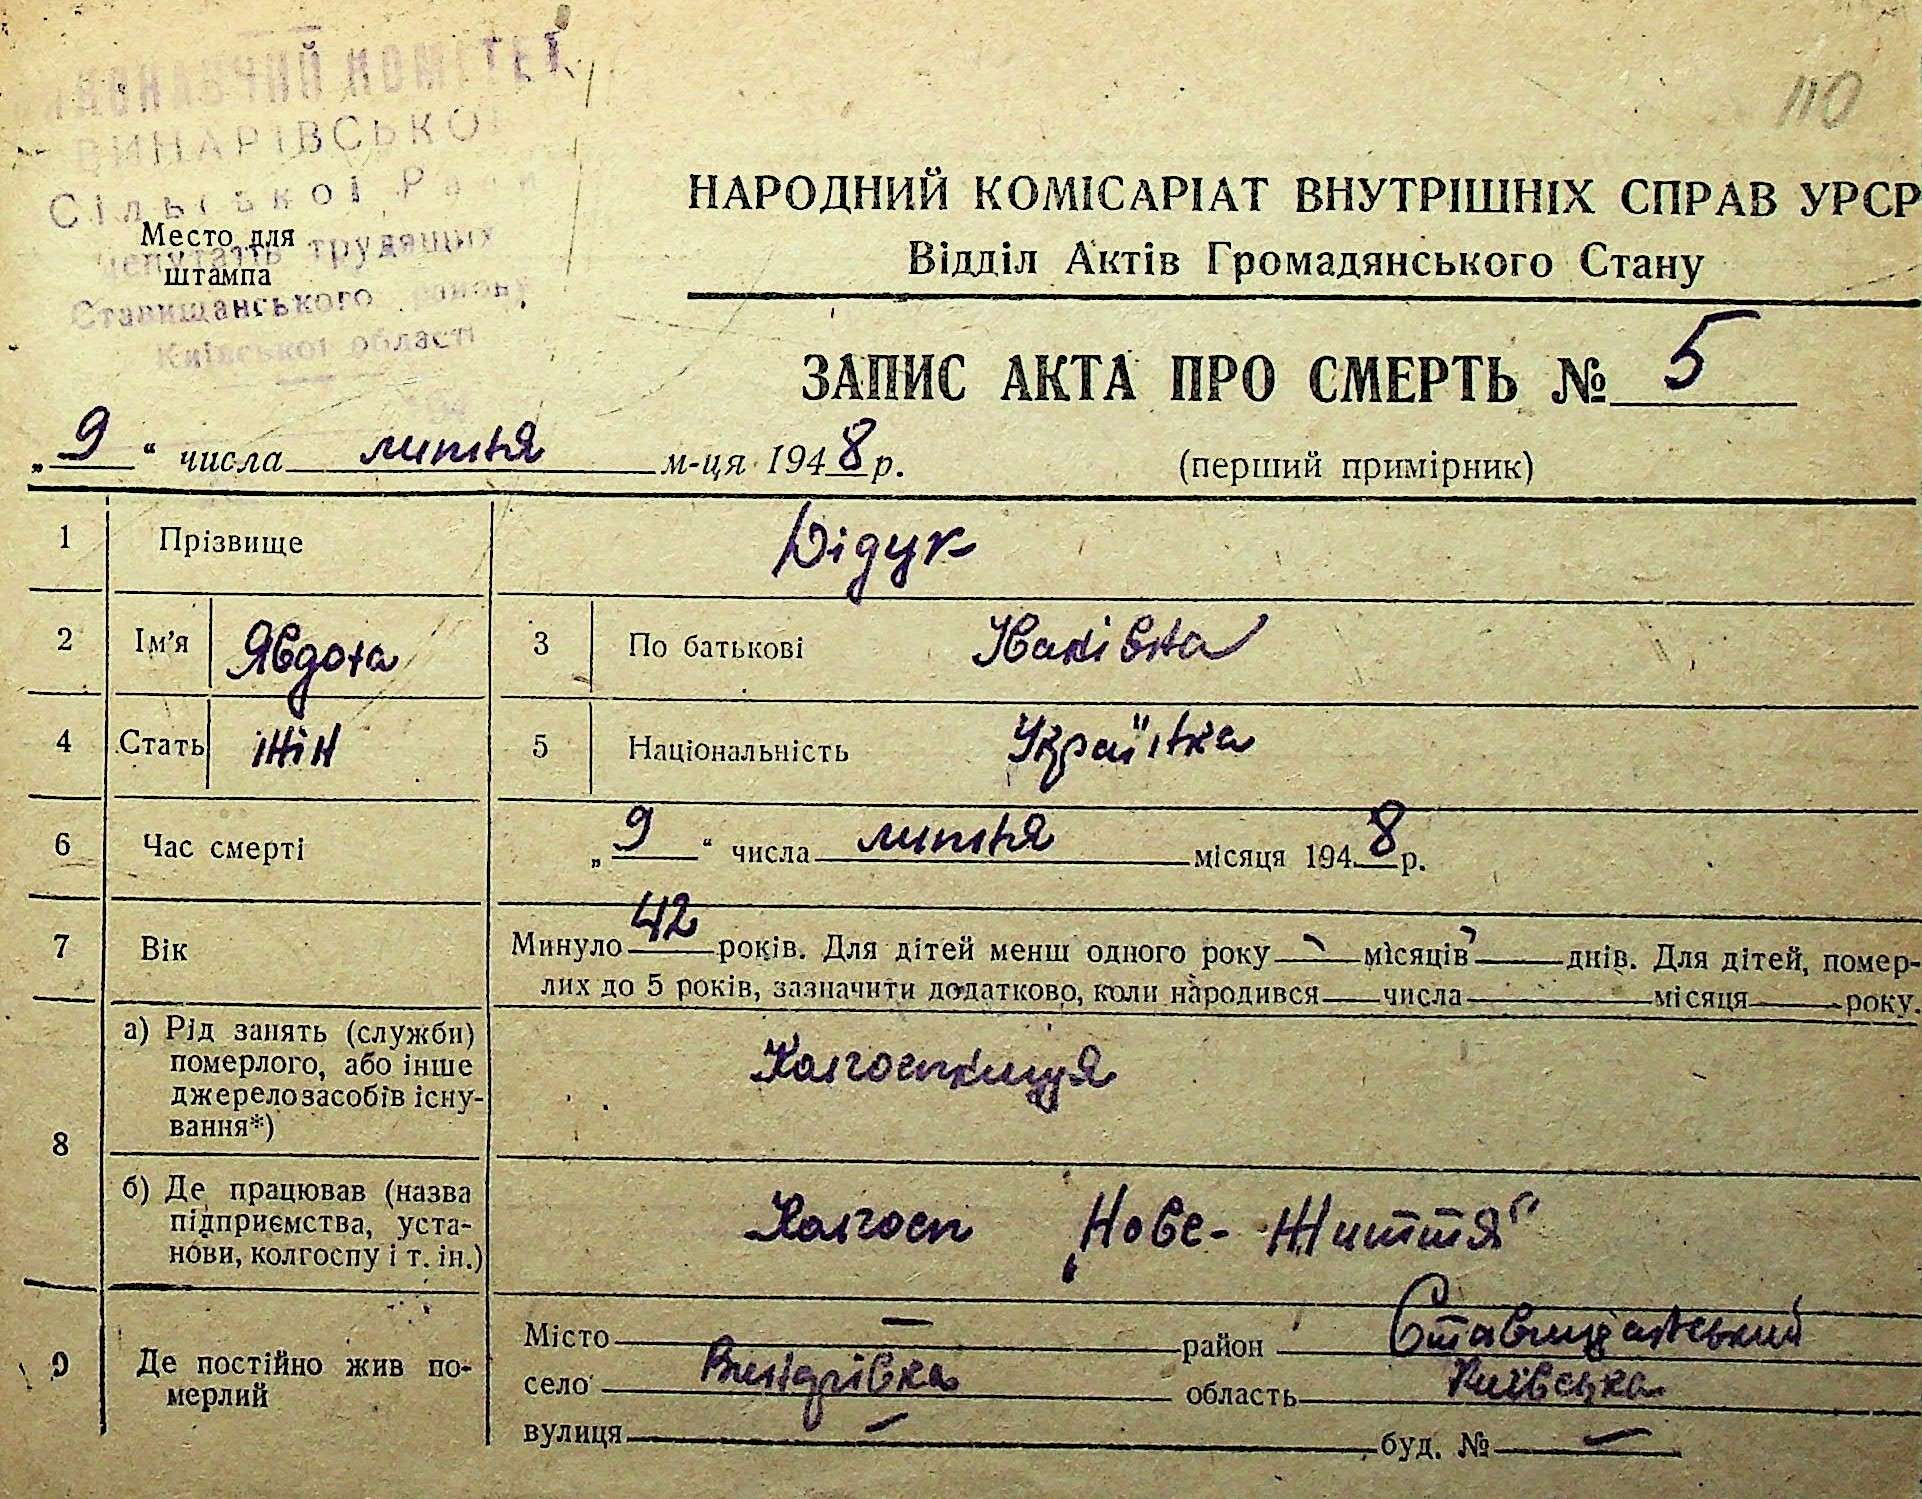 ВИКОНАВЧИЙ КОМІТЕТ
ВИНАРІВСЬКОЇ
Сільської Ради
депутатів трудящих
Ставищанського району
Київської області
Место для
штампа
110
НАРОДНИЙ КОМІСАРІАТ ВНУТРІШНІХ СПРАВ УРСР
Відділ Актів Громадянського Стану
ЗАПИС АКТА ПРО СМЕРТЬ № 5
„ 9 “ числа липня м-ця 1948 р.
(перший примірник)
1 Прізвище Дідук
2 Ім'я Явдоха 3 По батькові Іванівна
4 Стать жін 5 Національність Українка
6 Час смерті „ 9 “ числа липня місяця 1948 р.
7 Вік Минуло 42 років. Для дітей менш одного року — місяців — днів. Для дітей, помер-
лих до 5 років, зазначити додатково, коли народився числа місяця року.
8 а) Рід занять (служби)
померлого, або інше
джерело засобів існу-
вання*)
Колгоспниця
б) Де працював (назва
підприємства, уста-
нови, колгоспу і т. ін.)
Колгосп „Нове-Життя“
9 Де постійно жив по-
мерлий
Місто — район Ставищанський
село Винарівка область Київська
вулиця — буд. № —